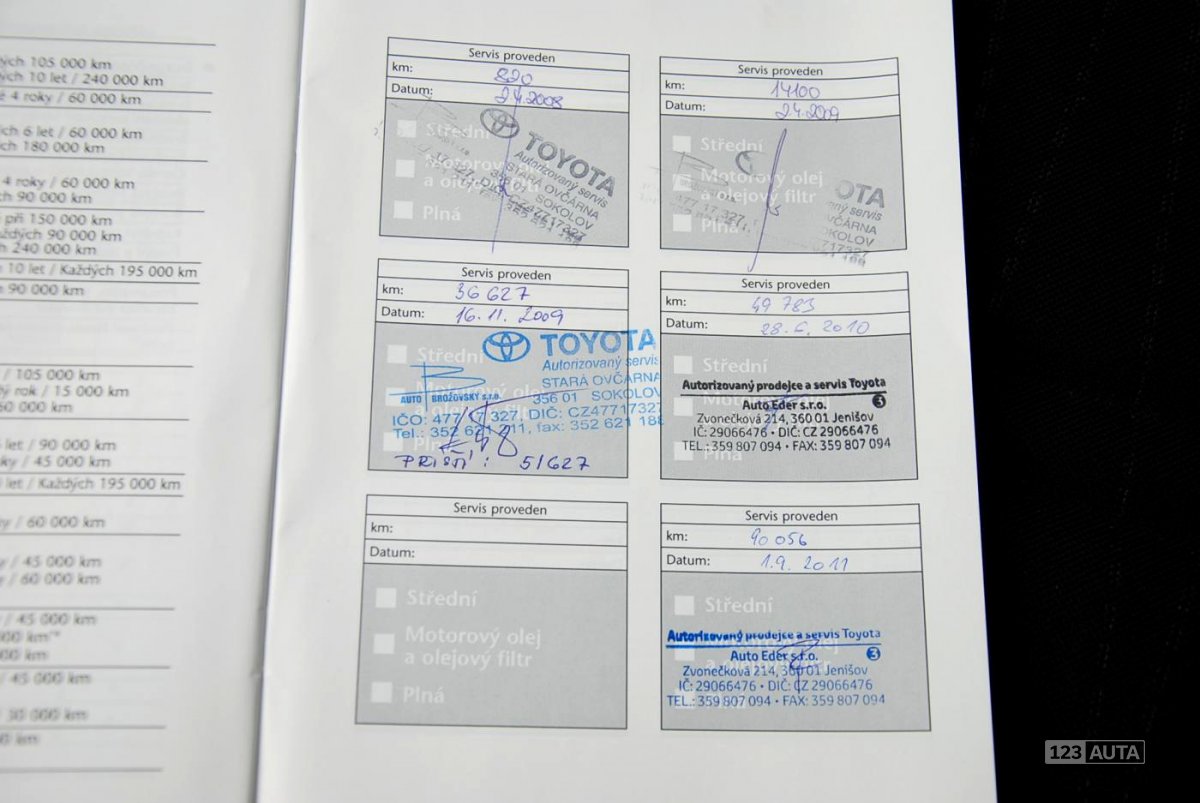 ých 105 000 km
ých 10 let / 240 000 km
é 4 roky / 60 000 km
ch 6 let / 60 000 km
ch 180 000 km
4 roky / 60 000 km
ch 90 000 km
při 150 000 km
aždých 90 000 km
240 000 km
10 let / Každých 195 000 km
90 000 km
/ 105 000 km
ý rok / 15 000 km
60 000 km
let / 90 000 km
ky / 45 000 km
let / Každých 195 000 km
y / 60 000 km
/ 45 000 km
/ 60 000 km
/ 45 000 km
000 km
000 km
/ 45 000 km
30 000 km
km
Servis proveden
km: 820
Datum: 2.4.2008
Střední
Motorový
a olejový
Plná
TOYOTA
Autorizovaný servis
STARÁ OVČÁRNA
356 01 SOKOLOV
17 327, DIČ: CZ47717327
Servis proveden
km: 14100
Datum: 2.4.2009
Střední
Motorový olej
a olejový filtr
Plná
OTA
ený servis
OVČÁRNA
SOKOLOV
477 17 327,
717327
Servis proveden
km: 36 627
Datum: 16. 11. 2009
Střední
Motorový olej
a olejový filtr
Plná
TOYOTA
Autorizovaný servis
STARÁ OVČÁRNA
356 01 SOKOLOV
AUTO BROŽOVSKÝ s.r.o.
IČO: 477 17 327, DIČ: CZ47717327
Tel.: 352 621 211, fax: 352 621 188
PŘIŠTÍ: 51627
Servis proveden
km: 49 783
Datum: 28. 6. 2010
Střední
Autorizovaný prodejce a servis Toyota
Auto Eder s.r.o. 3
Zvonečková 214, 360 01 Jenišov
IČ: 29066476 • DIČ: CZ 29066476
TEL.: 359 807 094 • FAX: 359 807 094
Plná
Servis proveden
km:
Datum:
Střední
Motorový olej
a olejový filtr
Plná
Servis proveden
km: 90 056
Datum: 1.9. 2011
Střední
Autorizovaný prodejce a servis Toyota
Auto Eder s.r.o. 3
Zvonečková 214, 360 01 Jenišov
IČ: 29066476 • DIČ: CZ 29066476
TEL.: 359 807 094 • FAX: 359 807 094
123 AUTA